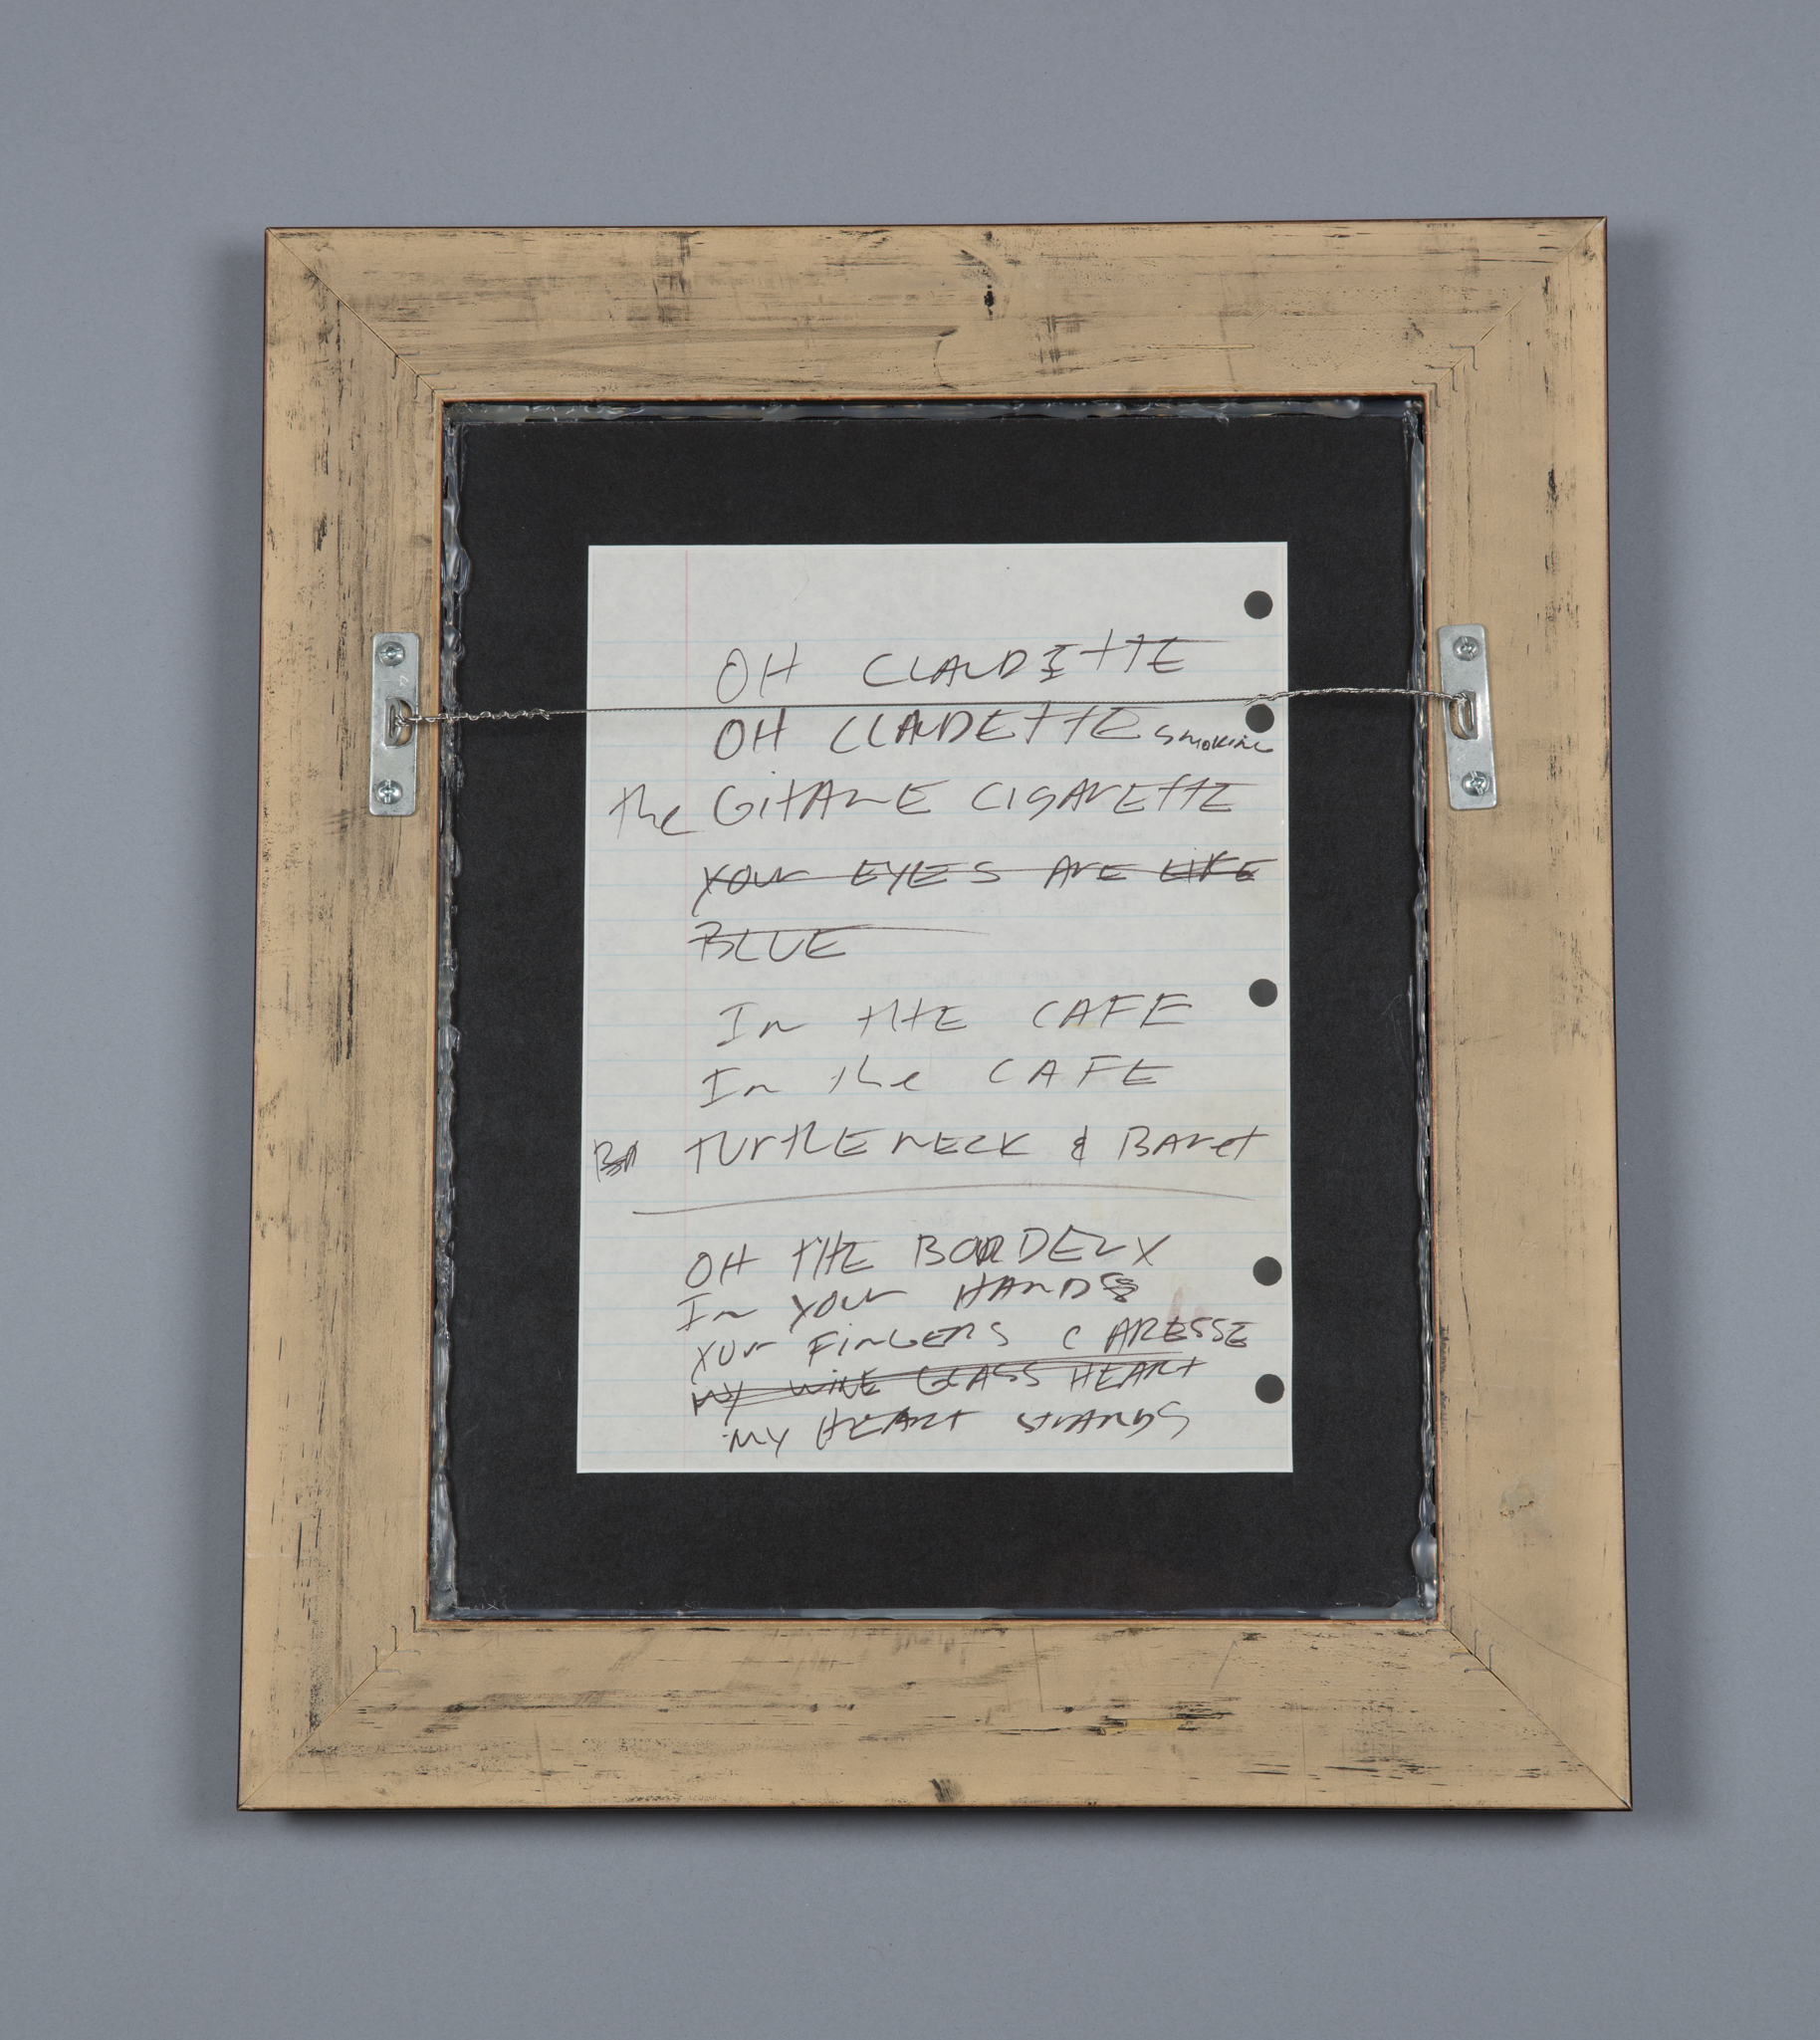 OH CLAUDETTE
OH CLAUDETTE SMOKING
the GITANE CIGARETTE
YOUR EYES ARE LIKE
BLUE
In tHE CAFE
In the CAFE
TURTLE NECK & BARET
OH THE BORDEUX
In YOUR HANDS
YOUR FINGERS CARESSE
MY WINE GLASS HEART
MY HEART STRANDS